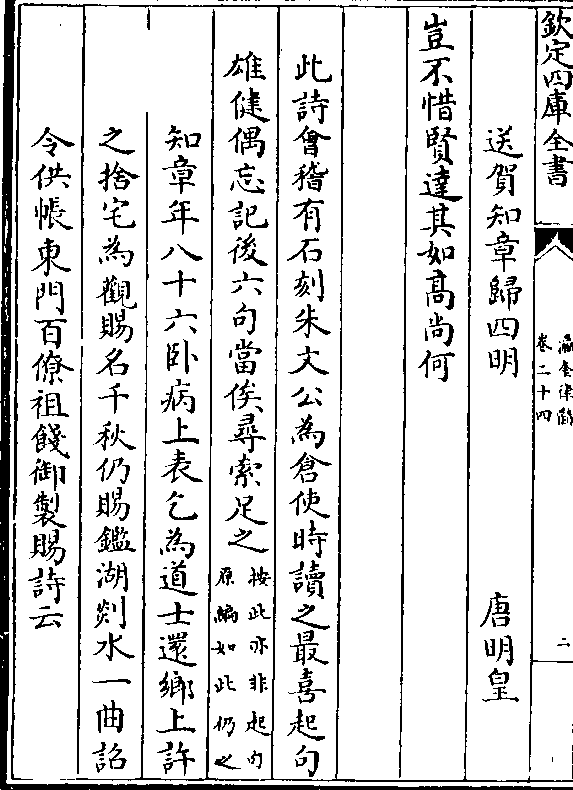 欽定四庫全書
瀛奎律髓
卷二十四
二
送賀知章歸四明
唐明皇
豈不惜賢達其如高尚何
此詩會稽有石刻朱文公為倉使時讀之最喜起句
雄健偶忘記後六句當俟尋索足之
按此亦非起句
原編如此仍之
知章年八十六卧病上表乞為道士還鄉上許
之捨宅為觀賜名千秋仍賜鑑湖剡水一曲詔
令供帳東門百僚祖餞御製賜詩云